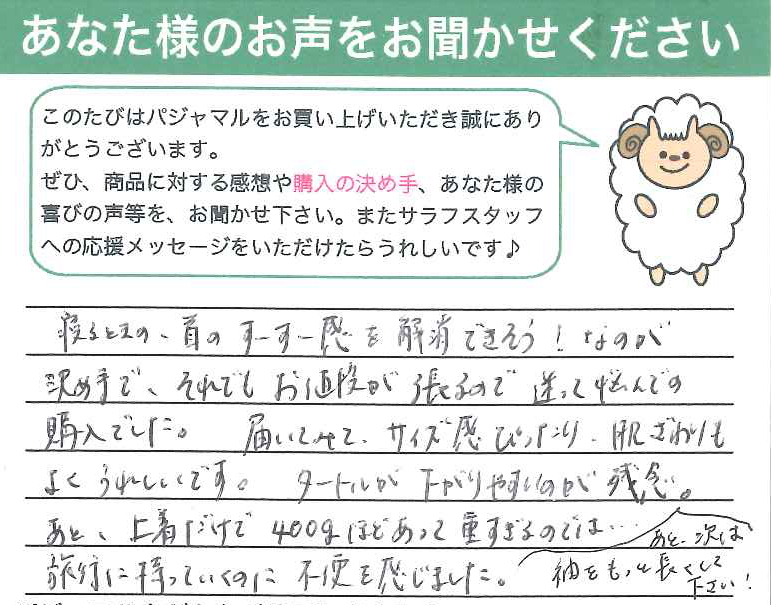 あなた様のお声をお聞かせください
このたびはパジャマルをお買い上げいただき誠にあり
がとうございます。
ぜひ、商品に対する感想や購入の決め手、あなた様の
喜びの声等を、お聞かせ下さい。またサラフスタッフ
への応援メッセージをいただけたらうれしいです♪
寝るときの、首のすーすー感を解消できそう！なのが
決め手で、それでもお値段が張るので迷って悩んでの
購入でした。 届いてみて、サイズ感ぴったり、肌ざわりも
よくうれしいです。 タートルが下がりやすいのが残念。
あと、上着だけで400gほどあって重すぎるのでは…
旅行に持っていくのに不便を感じました。
あと、次は
袖をもっと長くして
下さい！